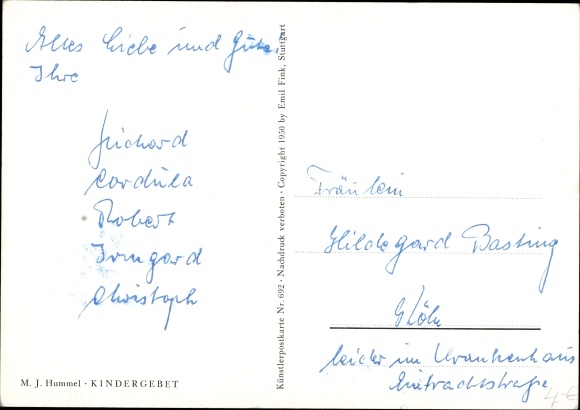 Alles Liebe und Gute.
Ihre
Richard
Cordula
Robert
Irmgard
Christoph
M. J. Hummel · KINDERGEBET
Künstlerpostkarte Nr. 692 · Nachdruck verboten · Copyright 1950 by Emil Fink, Stuttgart
Fräulein
Hildegard Basting
Köln
leider im Krankenhaus
Eintrachtstraße
4.-€